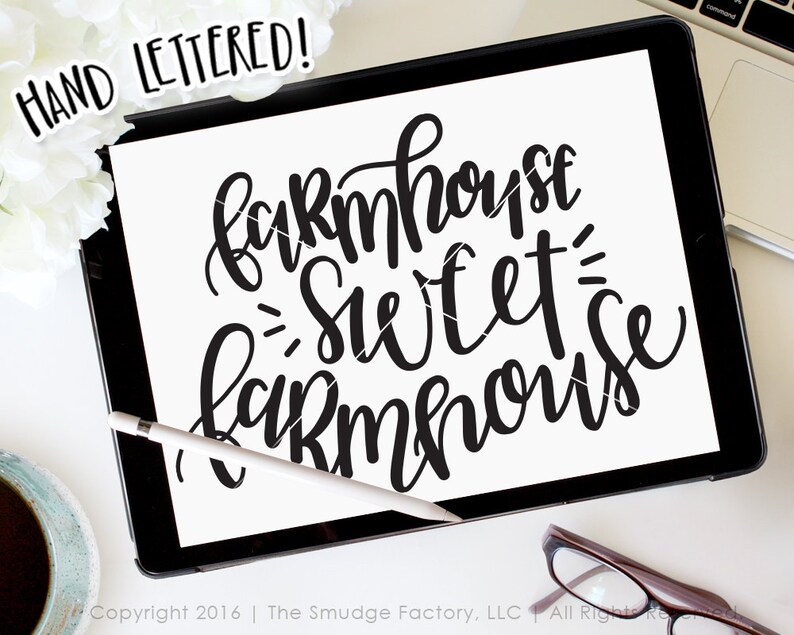 HAND LETTERED!
command
farmhouse
sweet
farmhouse
Copyright 2016 | The Smudge Factory, LLC | All Rights Reserved.